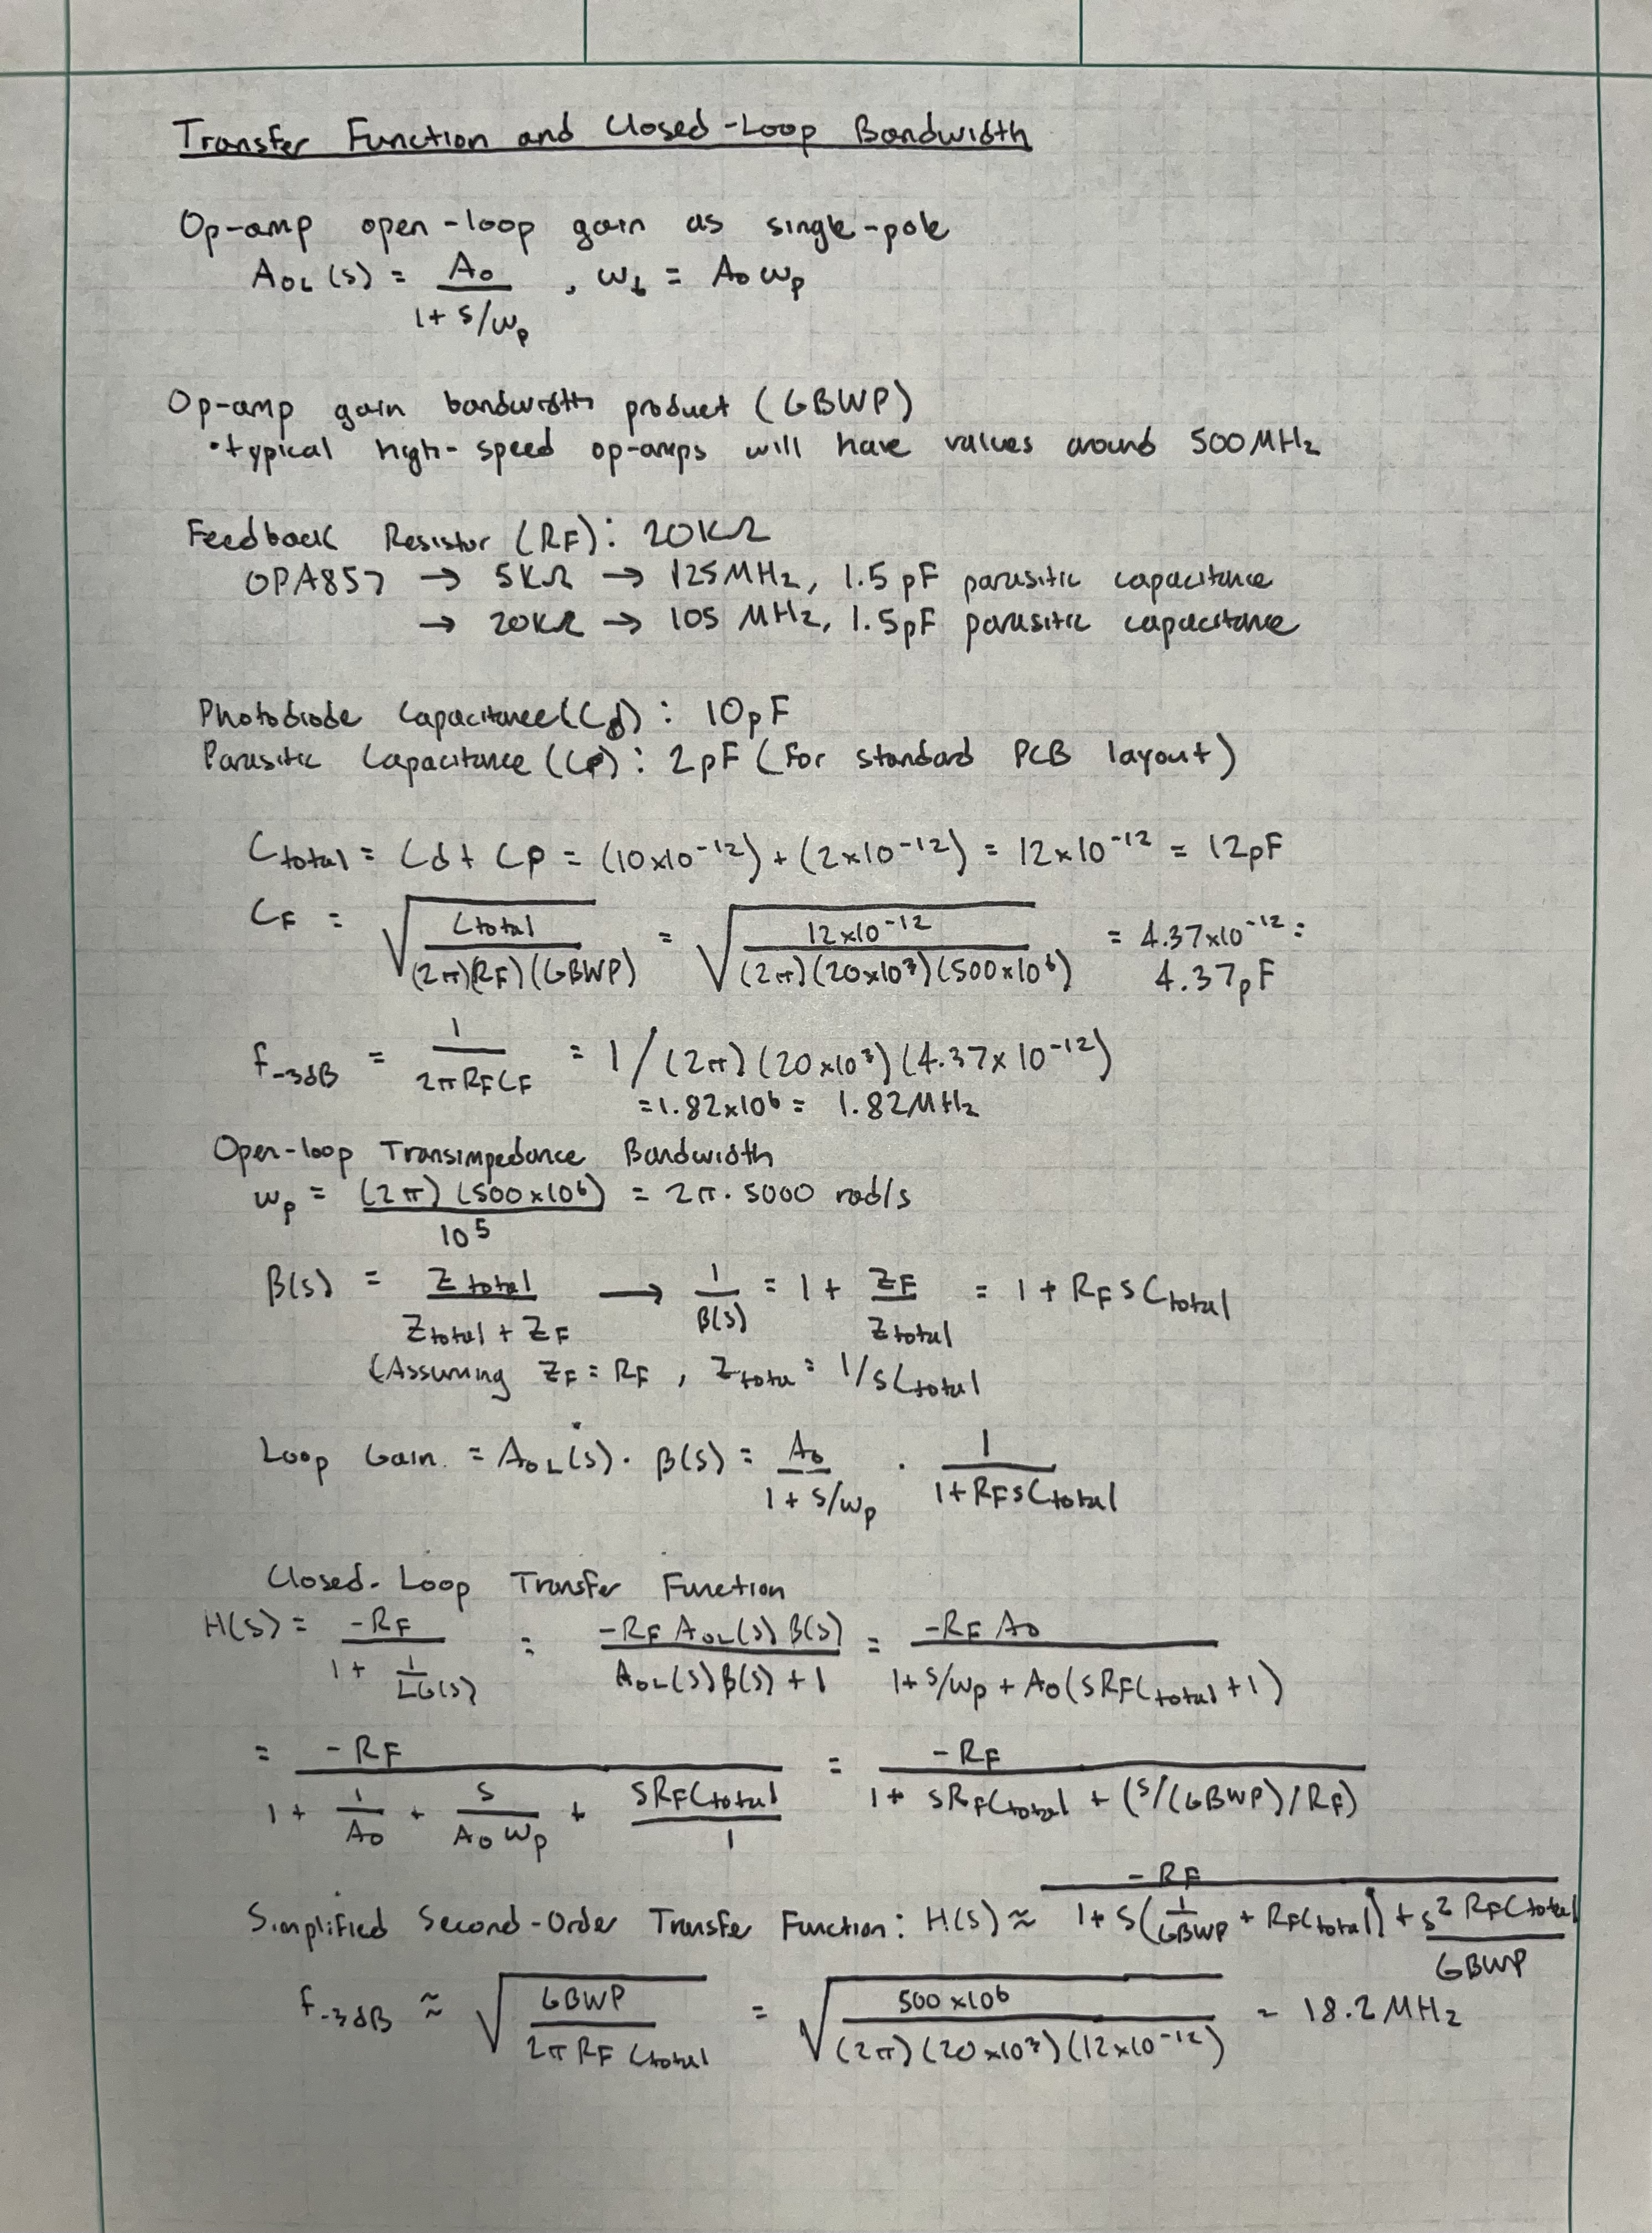 Transfer Function and Closed-Loop Bandwidth
Op-amp open-loop gain as single-pole
A_OL(s) = A_0 / (1 + s/ω_p) , ω_t = A_0 ω_p
Op-amp gain bandwidth product (GBWP)
• typical high-speed op-amps will have values around 500MHz
Feedback Resistor (RF): 20KΩ
OPA857 → 5KΩ → 125MHz, 1.5 pF parasitic capacitance
→ 20KΩ → 105 MHz, 1.5pF parasitic capacitance
Photodiode Capacitance (Cd): 10pF
Parasitic Capacitance (Cp): 2pF (For standard PCB layout)
C_total = Cd + Cp = (10x10^-12) + (2x10^-12) = 12x10^-12 = 12pF
C_F = √(C_total / (2π)(R_F)(GBWP)) = √(12x10^-12 / (2π)(20x10^3)(500x10^6)) = 4.37x10^-12 =
4.37pF
f_-3dB = 1 / 2πR_FC_F = 1/(2π)(20x10^3)(4.37x10^-12)
= 1.82x10^6 = 1.82MHz
Open-loop Transimpedance Bandwidth
ω_p = (2π)(500x10^6) / 10^5 = 2π·5000 rad/s
β(s) = Z_total / (Z_total + Z_F) → 1/β(s) = 1 + Z_F/Z_total = 1 + R_F s C_total
(Assuming Z_F = R_F , Z_total = 1/sC_total
Loop Gain = A_OL(s) · β(s) = A_0 / (1 + s/ω_p) · 1 / (1 + R_F s C_total)
Closed-Loop Transfer Function
H(s) = -R_F / (1 + 1/LG(s)) = -R_F A_OL(s) β(s) / (A_OL(s) β(s) + 1) = -R_F A_0 / (1 + s/ω_p + A_0(sR_FC_total + 1))
= -R_F / (1 + 1/A_0 + s/(A_0 ω_p) + sR_FC_total/1) = -R_F / (1 + sR_FC_total + (s/(GBWP)/R_F))
Simplified Second-Order Transfer Function: H(s) ≈ -R_F / (1 + s(1/GBWP + R_FC_total) + s^2 R_FC_total/GBWP)
f_-3dB ≈ √(GBWP / 2πR_F C_total) = √(500x10^6 / (2π)(20x10^3)(12x10^-12)) = 18.2 MHz